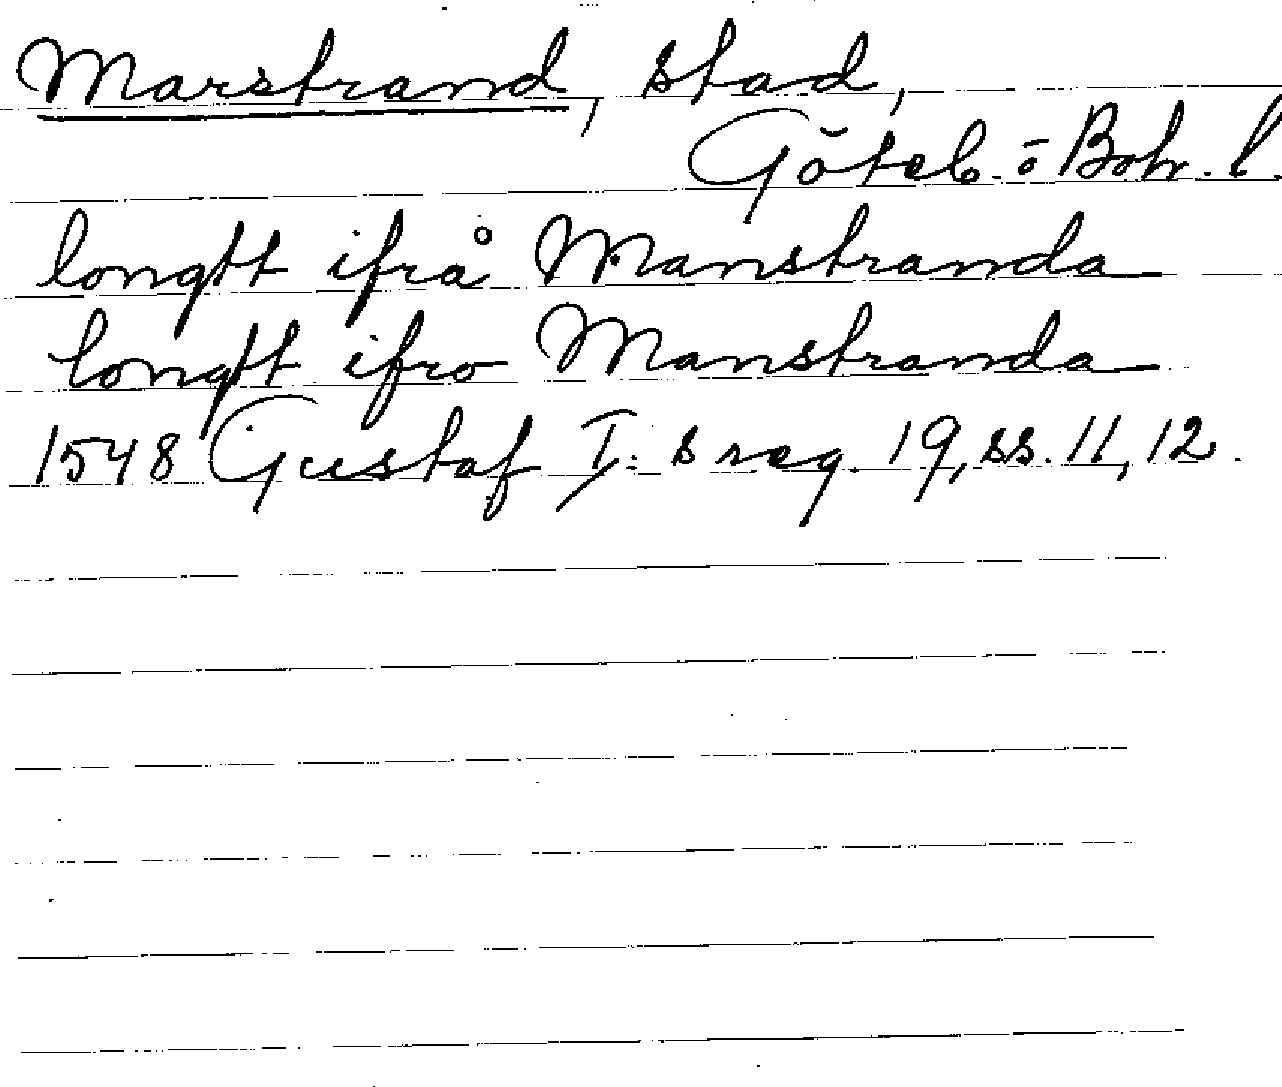 Marstrand, stad,
Göteb. o Boh. l.
longtt ifrå Manstranda
longtt ifro Manstranda
1548 Gustaf I:s reg. 19, ss. 11, 12.